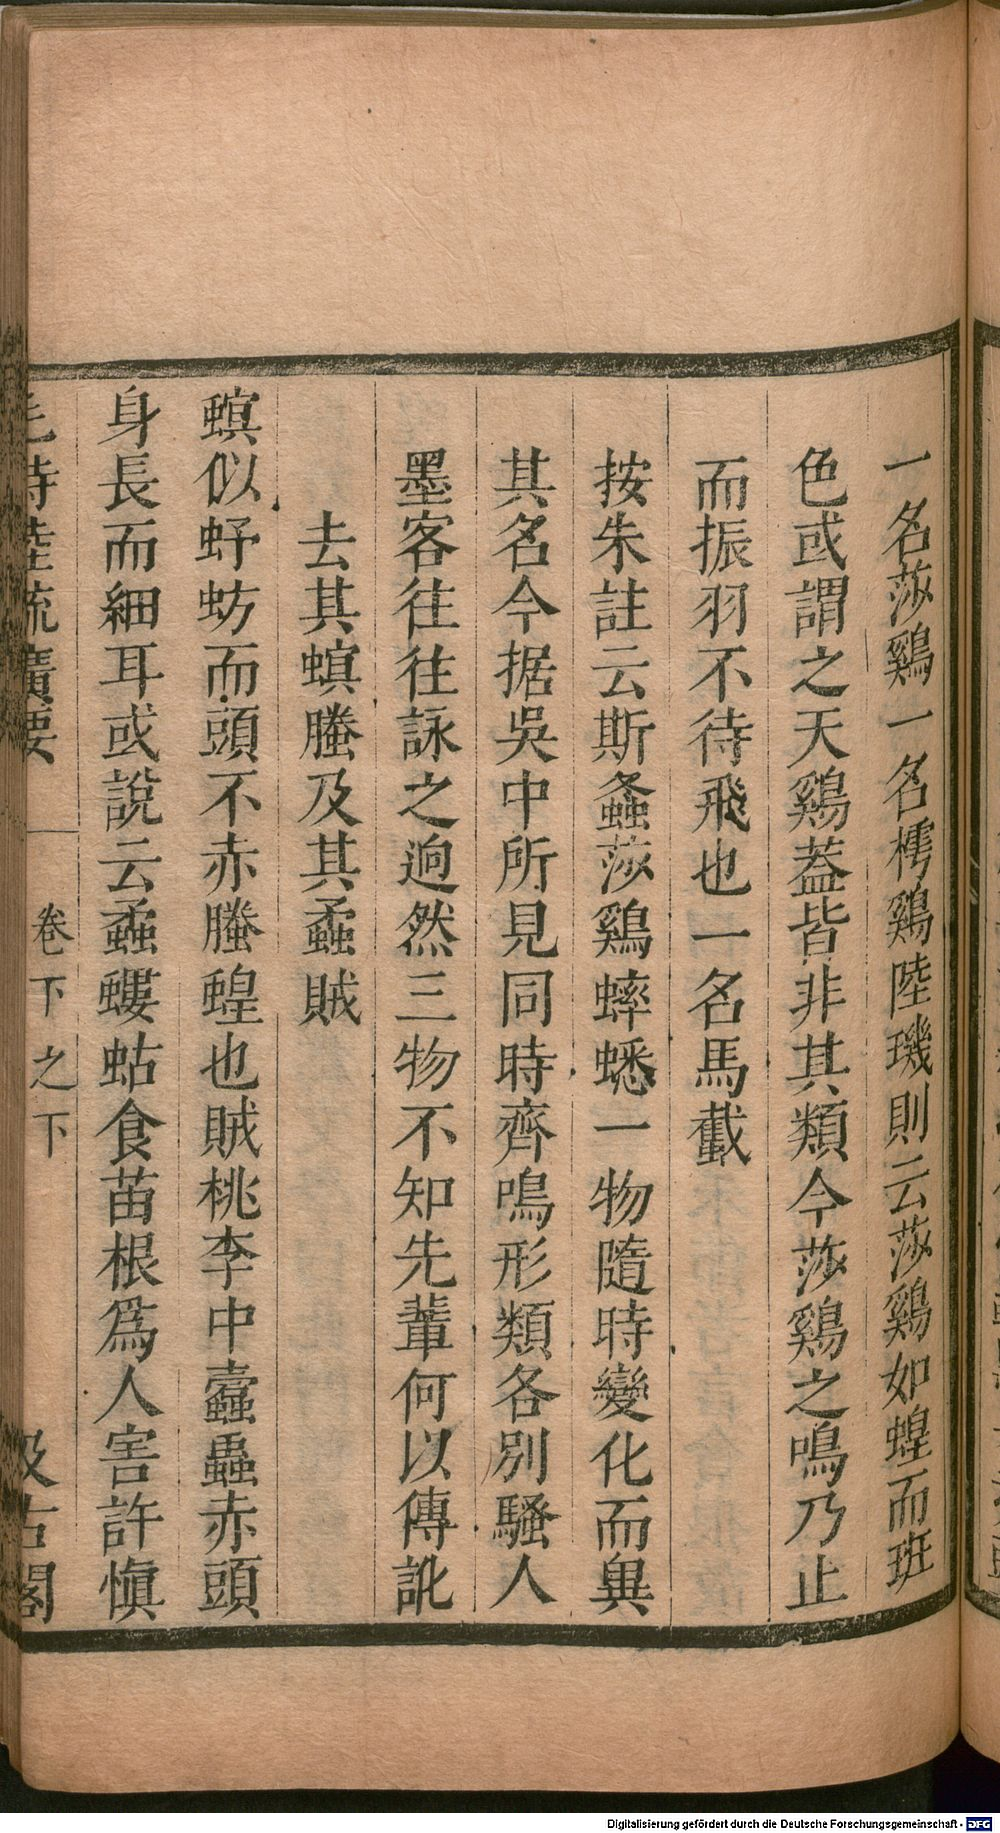 一名莎鷄一名樗鷄陸璣則云莎鷄如蝗而班
色或謂之天鷄葢皆非其類今莎鷄之鳴乃止
而振羽不待飛也一名馬㦸
按朱註云斯螽莎鷄蟀蟋一物隨時變化而異
其名今据吳中所見同時齊鳴形類各別騷人
墨客往往詠之逈然三物不知先輩何以傳訛
去其螟螣及其蟊賊
螟似虸蚄而頭不赤螣蝗也賊桃李中蠧蟲赤頭
身長而細耳或說云蟊螻蛄食苗根爲人害許愼
毛詩陸疏廣要
卷下之下
汲古閣
Digitalisierung gefördert durch die Deutsche Forschungsgemeinschaft - DFG